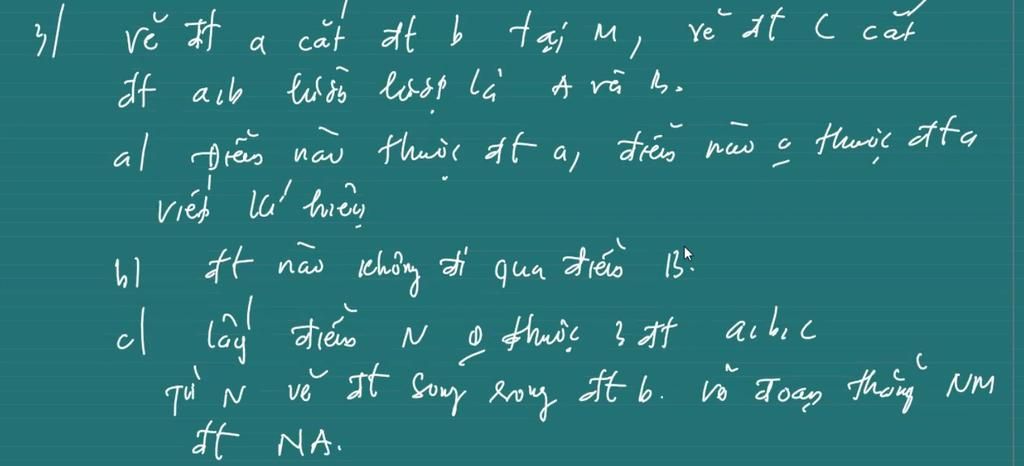 3/ vẽ đt a cắt đt b tại M, vẽ đt c cắt
đt a,b lần lượt là A và B.
a/ Điểm nào thuộc đt a, điểm nào o thuộc đt a
viết kí hiệu
b/ đt nào không đi qua điểm B.
c/ lấy điểm N o thuộc 3 đt a,b,c
Từ N vẽ đt song song đt b. vẽ đoạn thẳng NM
đt NA.